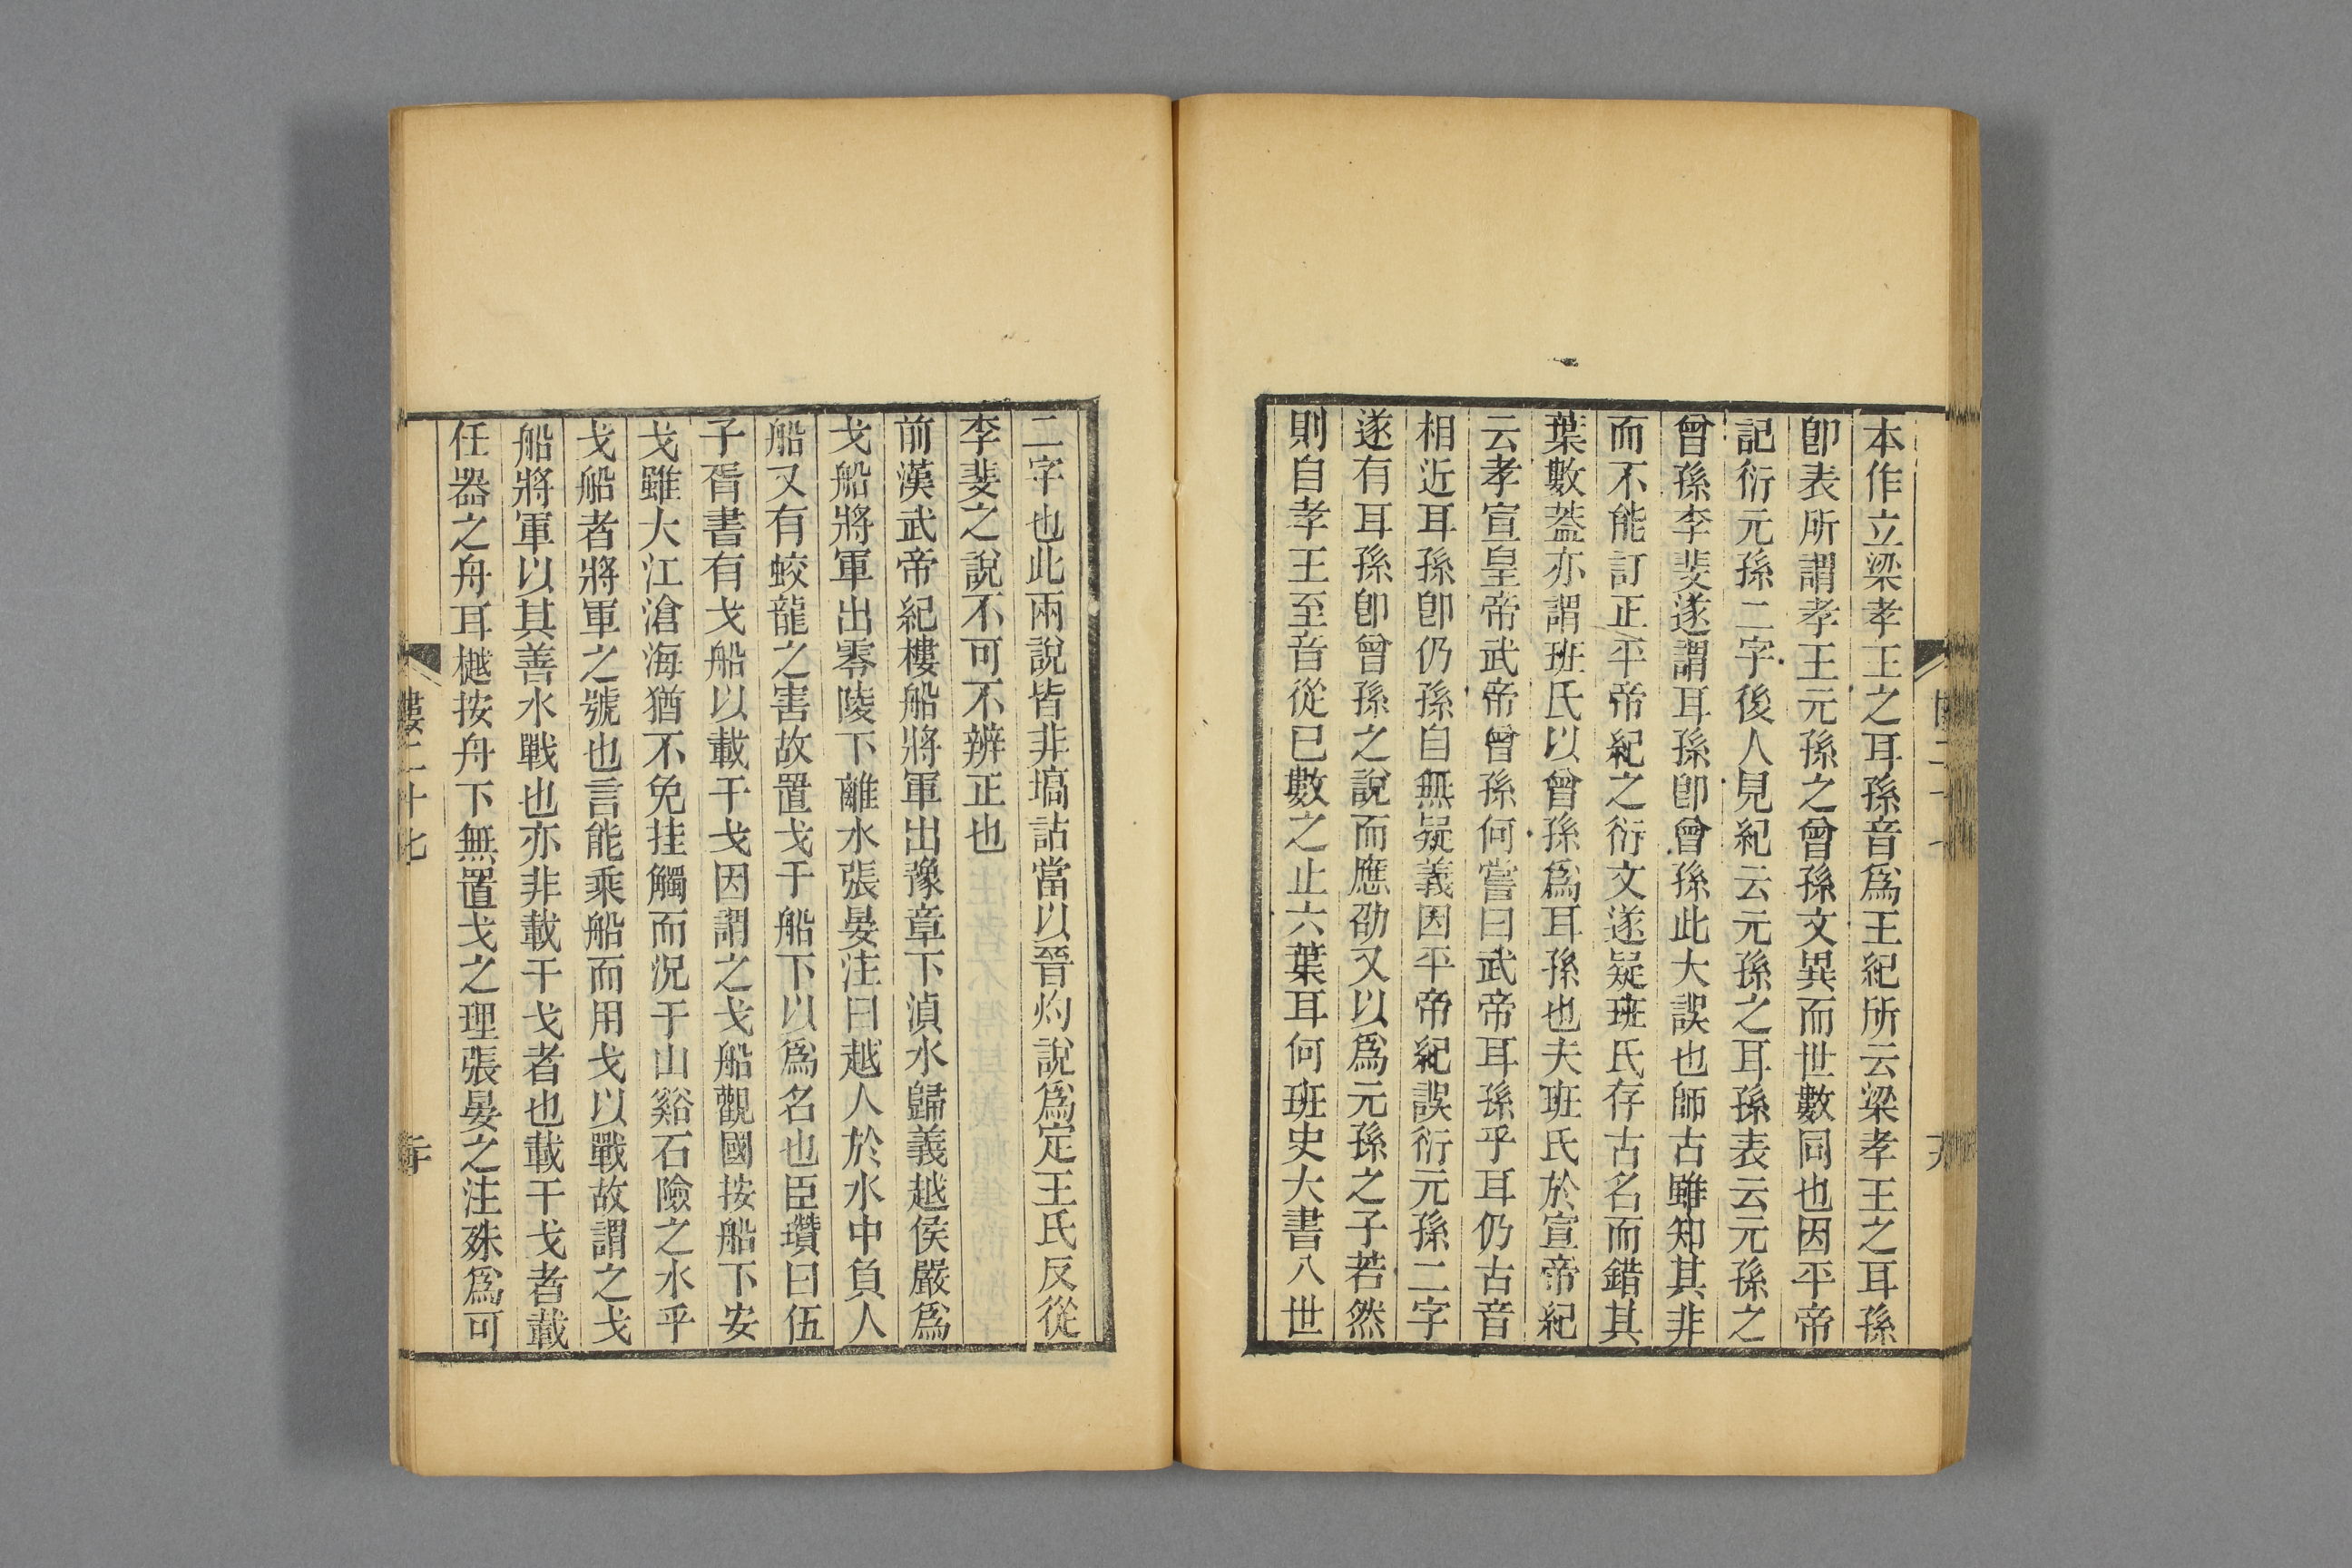 本作立梁孝王之耳孫音爲王紀所云梁孝王之耳孫
卽表所謂孝王元孫之曾孫文異而世數同也因平帝
記衍元孫二字後人見紀云元孫之耳孫表云元孫之
曾孫李斐遂謂耳孫卽曾孫此大誤也師古雖知其非
而不能訂正平帝紀之衍文遂疑班氏存古名而錯其
葉數葢亦謂班氏以曾孫爲耳孫也夫班氏於宣帝紀
云孝宣皇帝武帝曾孫何嘗曰武帝耳孫乎耳仍古音
相近耳孫卽仍孫自無疑義因平帝紀誤衍元孫二字
遂有耳孫卽曾孫之說而應劭又以爲元孫之子若然
則自孝王至音從已數之止六葉耳何班史大書八世
二字也此兩說皆非塙詁當以晉灼說爲定王氏反從
李斐之說不可不辨正也
前漢武帝紀樓船將軍出豫章下湞水歸義越侯嚴爲
戈船將軍出零陵下離水張晏注曰越人於水中負人
船又有蛟龍之害故置戈于船下以爲名也臣瓚曰伍
子胥書有戈船以載干戈因謂之戈船觀國按船下安
戈雖大江滄海猶不免挂觸而況于山谿石險之水乎
戈船者將軍之號也言能乘船而用戈以戰故謂之戈
船將軍以其善水戰也亦非載干戈者也載干戈者載
任器之舟耳樾按舟下無置戈之理張晏之注殊爲可
樓二十七
二十